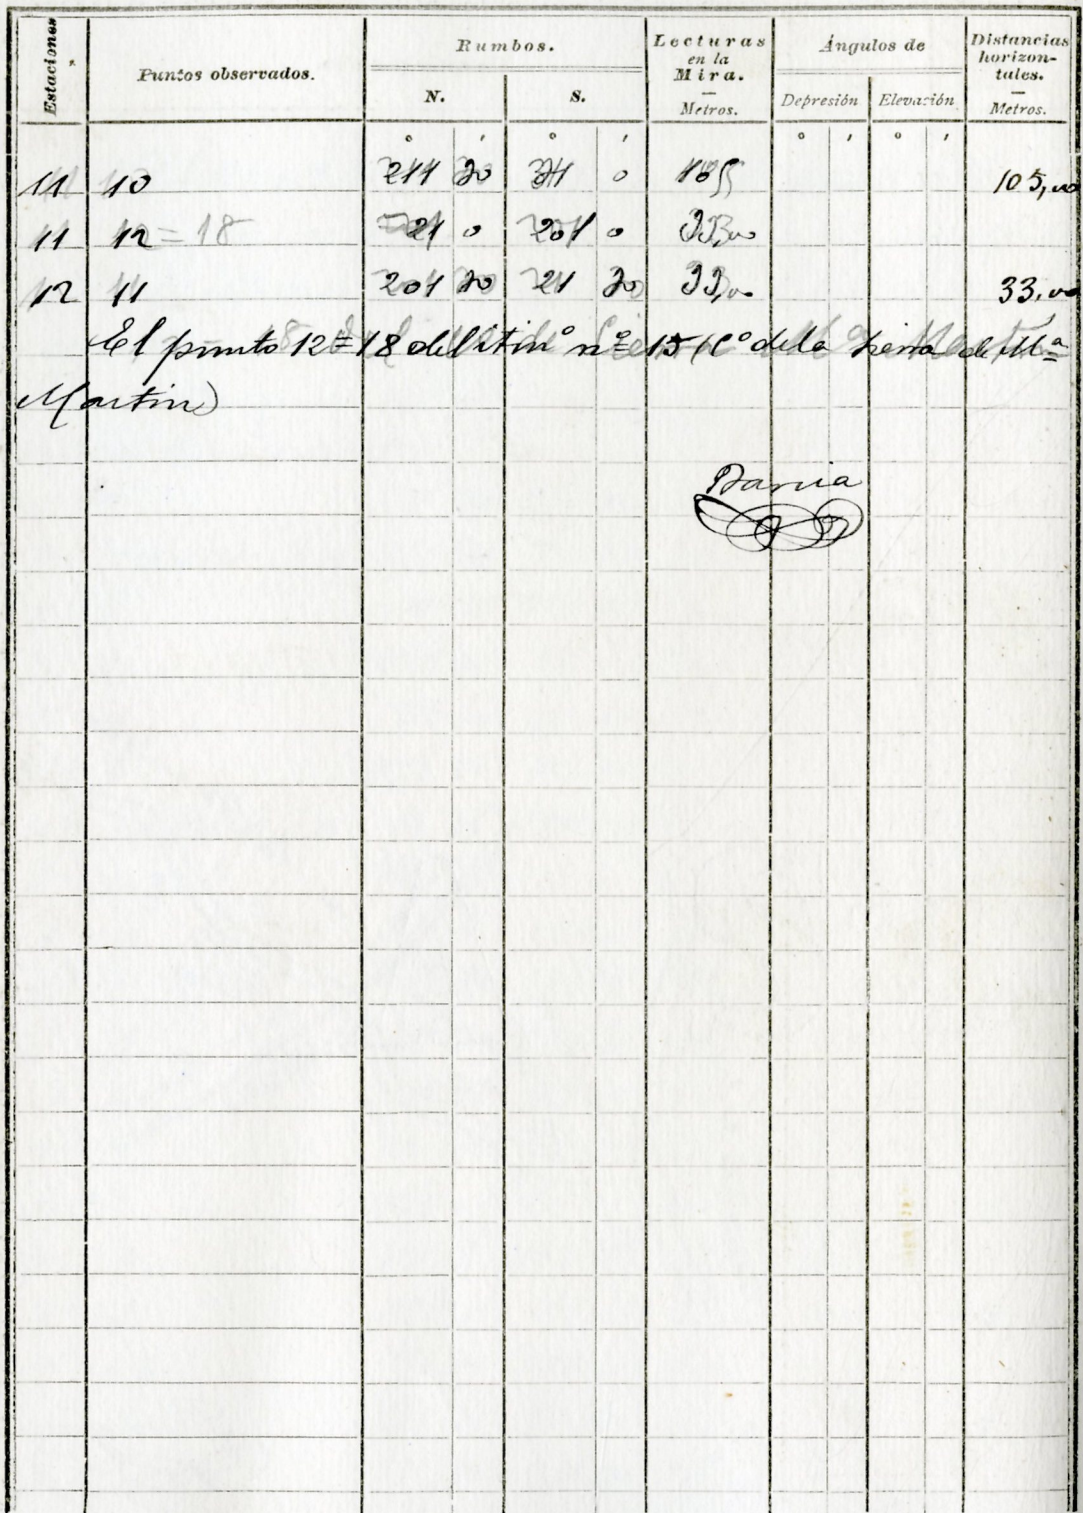 Estaciones
Puntos observados.
Rumbos.
N.
S.
Lecturas
en la
Mira.
Metros.
Ángulos de
Depresión
Elevación
Distancias
horizon-
tales.
Metros.
° ' ° ' ° ' ° '
11 10 211 20 31 0 105 105,00
11 12 = 18 21 0 201 0 33,00
12 11 201 20 21 20 33,00 33,00
El punto 12 = 18 del itinº nº 15 (Cº de la Sierra de Mª
Martin)